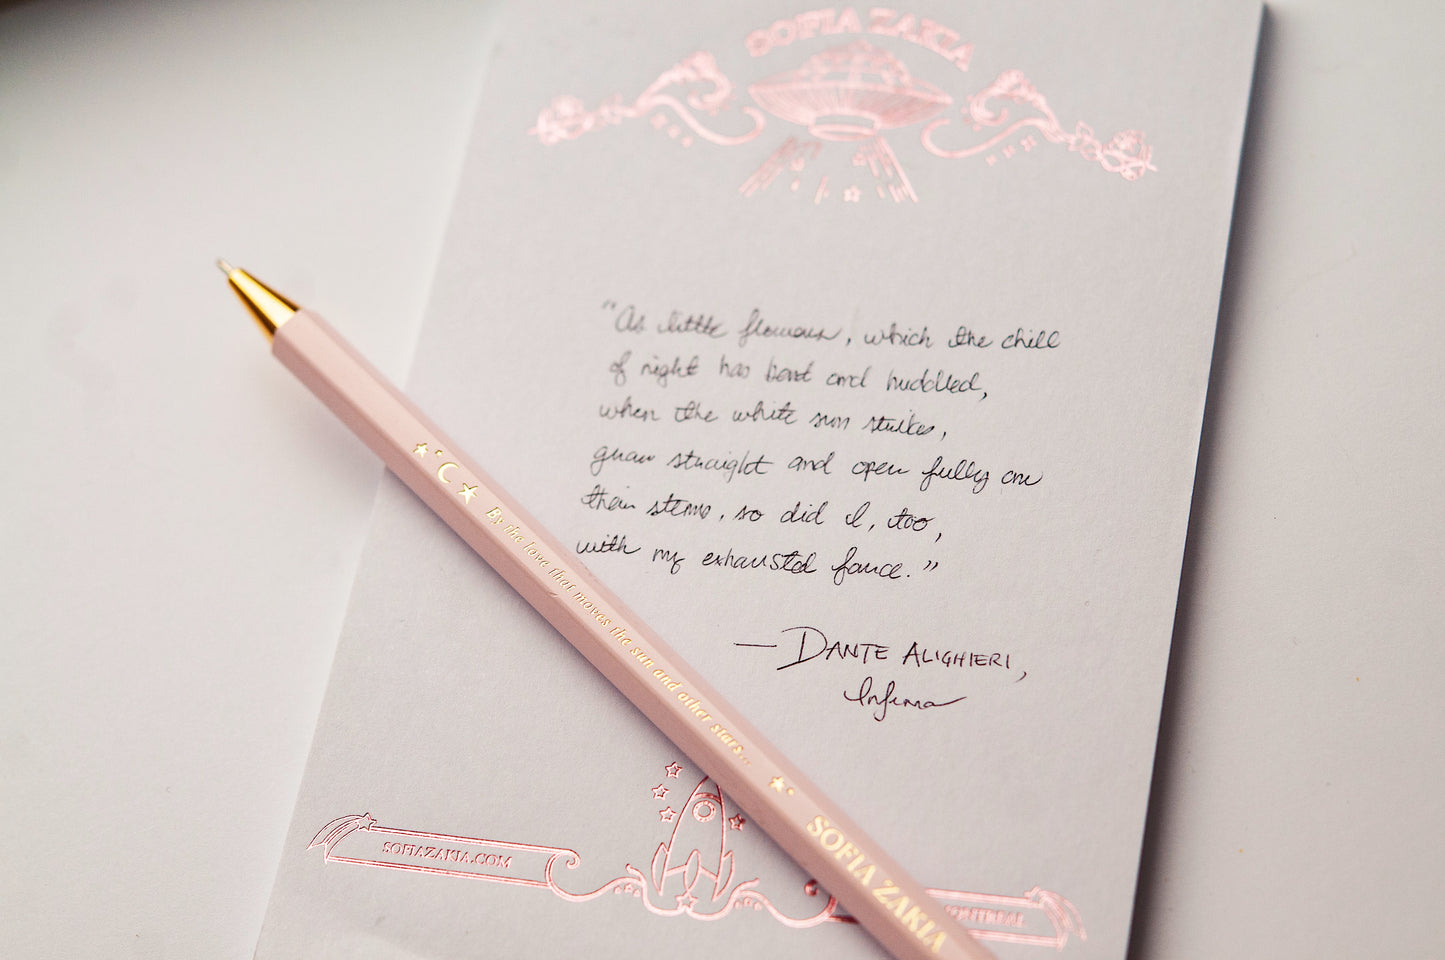 SOFIA ZAKIA
"As little flowers, which the chill
of night has bent and huddled,
when the white sun strikes,
grow straight and open fully on
their stems, so did I, too,
with my exhausted force."
— DANTE ALIGHIERI,
Inferno
By the love that moves the sun and other stars...
SOFIA ZAKIA
SOFIAZAKIA.COM
MONTREAL